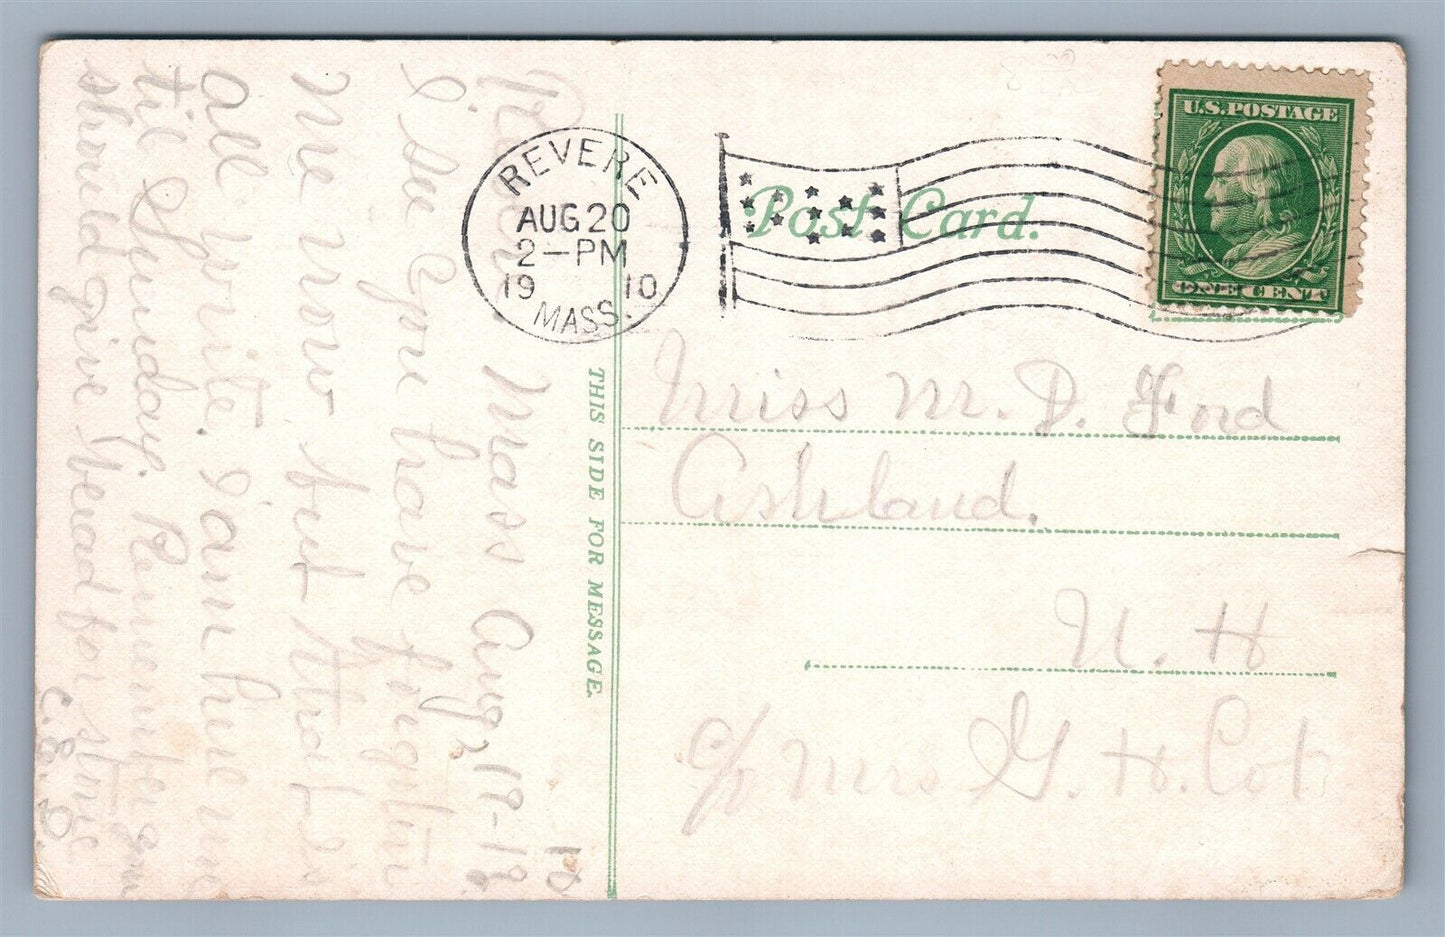 REVERE
AUG 20
2-PM
19 10
MASS.
U.S. POSTAGE
ONE CENT
Post Card.
THIS SIDE FOR MESSAGE.
Miss M. D. Ford
Ashland.
N. H
c/o Mrs G. H. Cot
Mass Aug. 19-19
10
I see you have forgotten
me now but that is
all write. I am here
til Sunday. Remember you
should give head for
C. E. D.